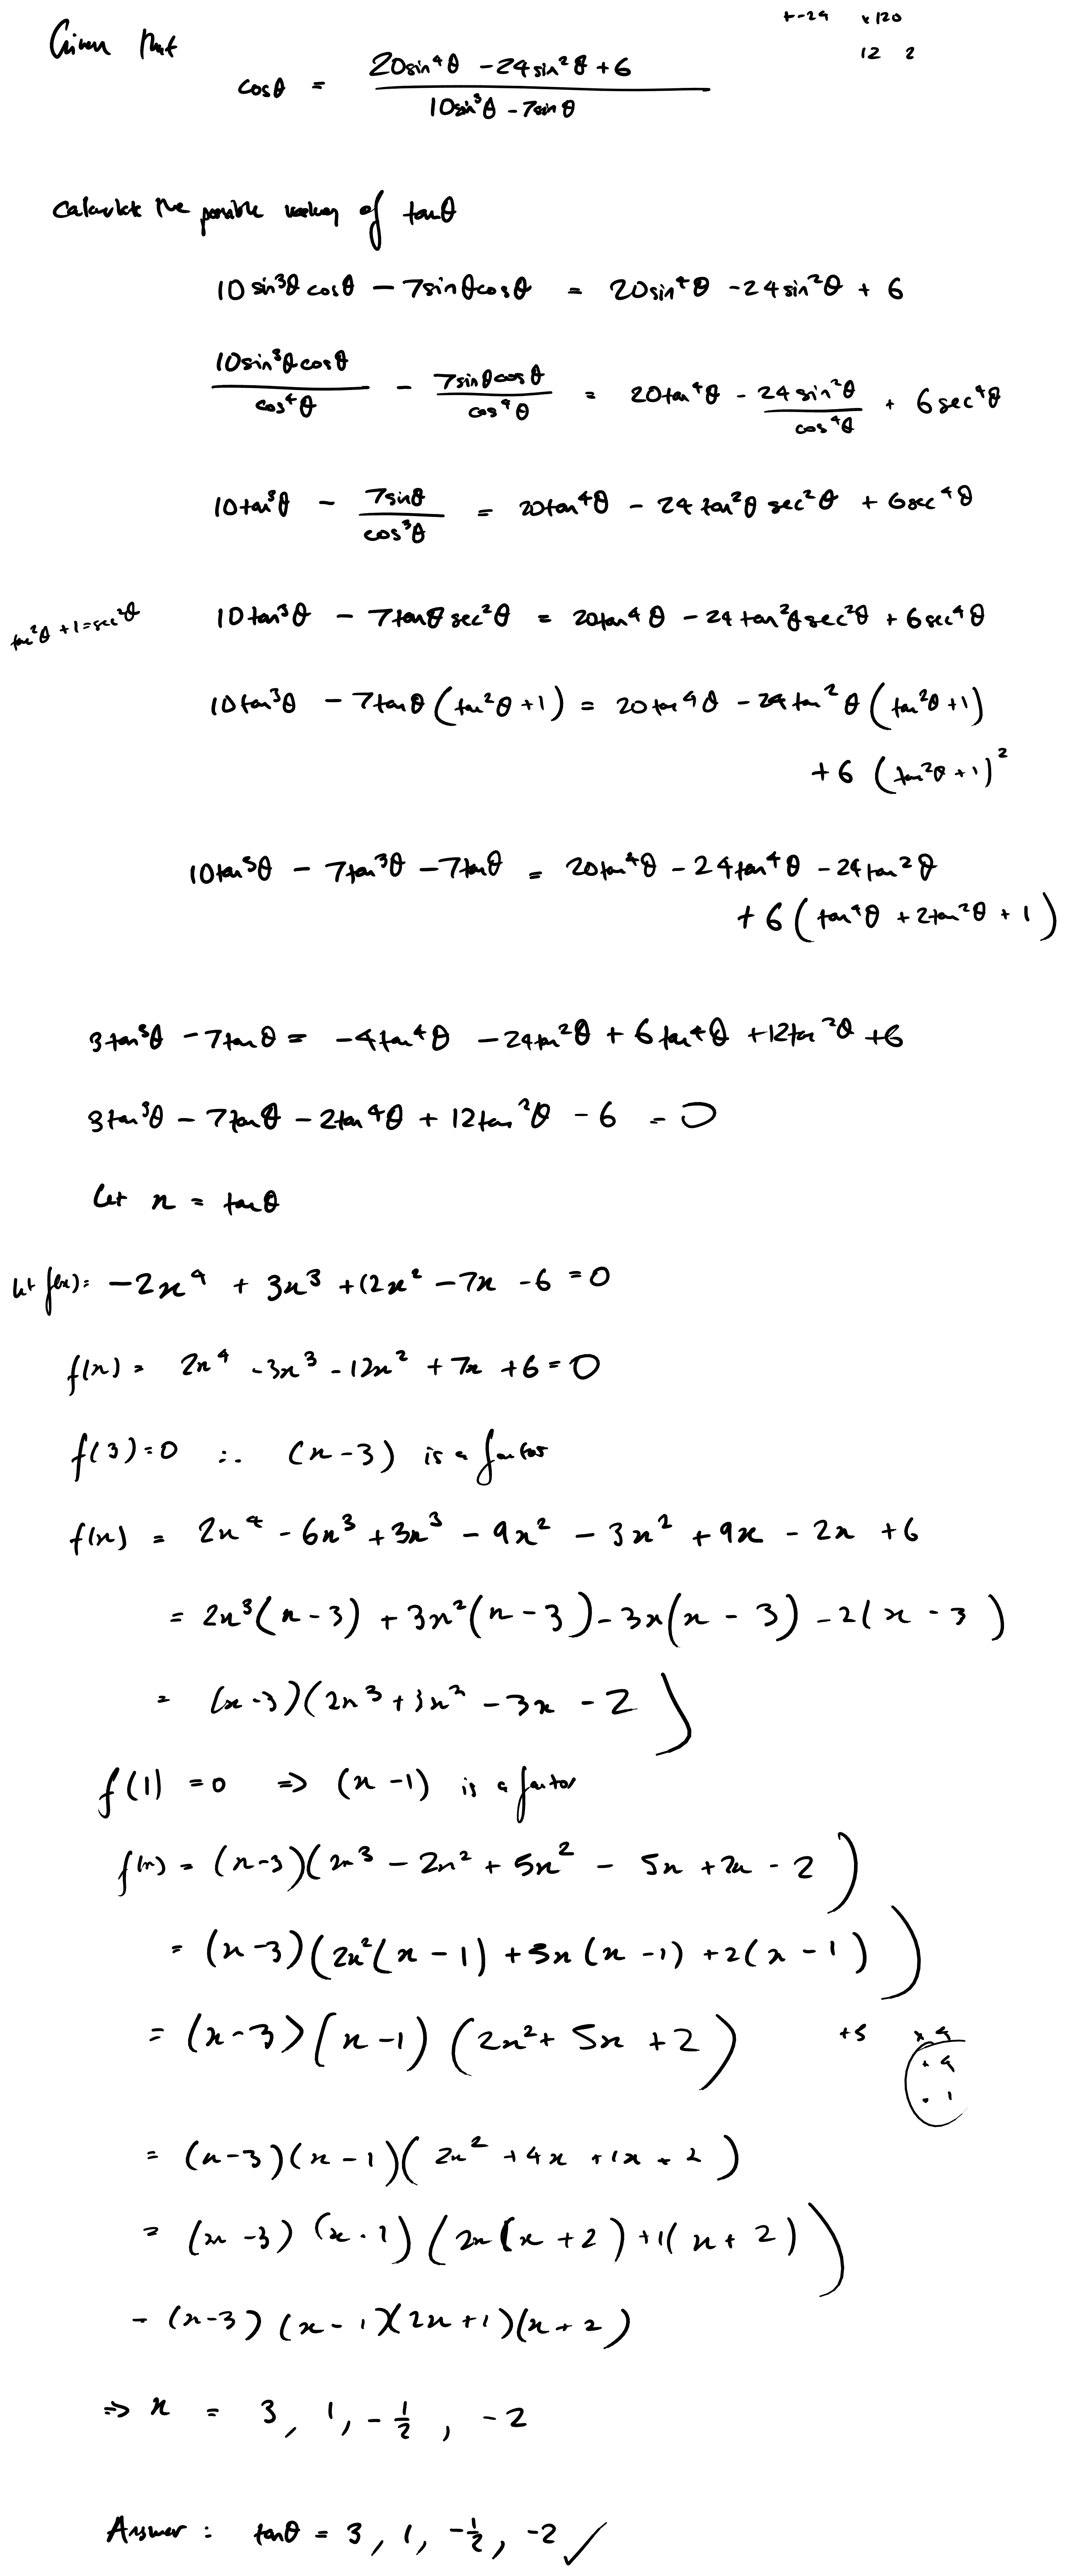 Given that
+-24 x120
12 2
cosθ = (20sin⁴θ - 24sin²θ + 6)/(10sin³θ - 7sinθ)
Calculate the possible values of tanθ
10sin³θcosθ - 7sinθcosθ = 20sin⁴θ - 24sin²θ + 6
10sin³θcosθ/cos⁴θ - 7sinθcosθ/cos⁴θ = 20tan⁴θ - 24sin²θ/cos⁴θ + 6sec⁴θ
10tan³θ - 7sinθ/cos³θ = 20tan⁴θ - 24tan²θ sec²θ + 6sec⁴θ
tan²θ + 1 = sec²θ
10tan³θ - 7tanθsec²θ = 20tan⁴θ - 24tan²θsec²θ + 6sec⁴θ
10tan³θ - 7tanθ(tan²θ + 1) = 20tan⁴θ - 24tan²θ(tan²θ + 1)
+ 6(tan²θ + 1)²
10tan³θ - 7tan³θ - 7tanθ = 20tan⁴θ - 24tan⁴θ - 24tan²θ
+ 6(tan⁴θ + 2tan²θ + 1)
3tan³θ - 7tanθ = -4tan⁴θ - 24tan²θ + 6tan⁴θ + 12tan²θ + 6
3tan³θ - 7tanθ - 2tan⁴θ + 12tan²θ - 6 = 0
Let x = tanθ
let f(x) = -2x⁴ + 3x³ + 12x² - 7x - 6 = 0
f(x) = 2x⁴ - 3x³ - 12x² + 7x + 6 = 0
f(3) = 0 ∴ (x-3) is a factor
f(x) = 2x⁴ - 6x³ + 3x³ - 9x² - 3x² + 9x - 2x + 6
= 2x³(x-3) + 3x²(x-3) - 3x(x-3) - 2(x-3)
= (x-3)(2x³ + 3x² - 3x - 2)
f(1) = 0 => (x-1) is a factor
f(x) = (x-3)(2x³ - 2x² + 5x² - 5x + 2x - 2)
= (x-3)(2x²(x-1) + 5x(x-1) + 2(x-1))
= (x-3)(x-1)(2x² + 5x + 2)
+5 x4
+ 4
+ 1
= (x-3)(x-1)(2x² + 4x + 1x + 2)
= (x-3)(x-1)(2x(x+2) + 1(x+2))
= (x-3)(x-1)(2x+1)(x+2)
=> x = 3, 1, -1/2, -2
Answer: tanθ = 3, 1, -1/2, -2 ✓